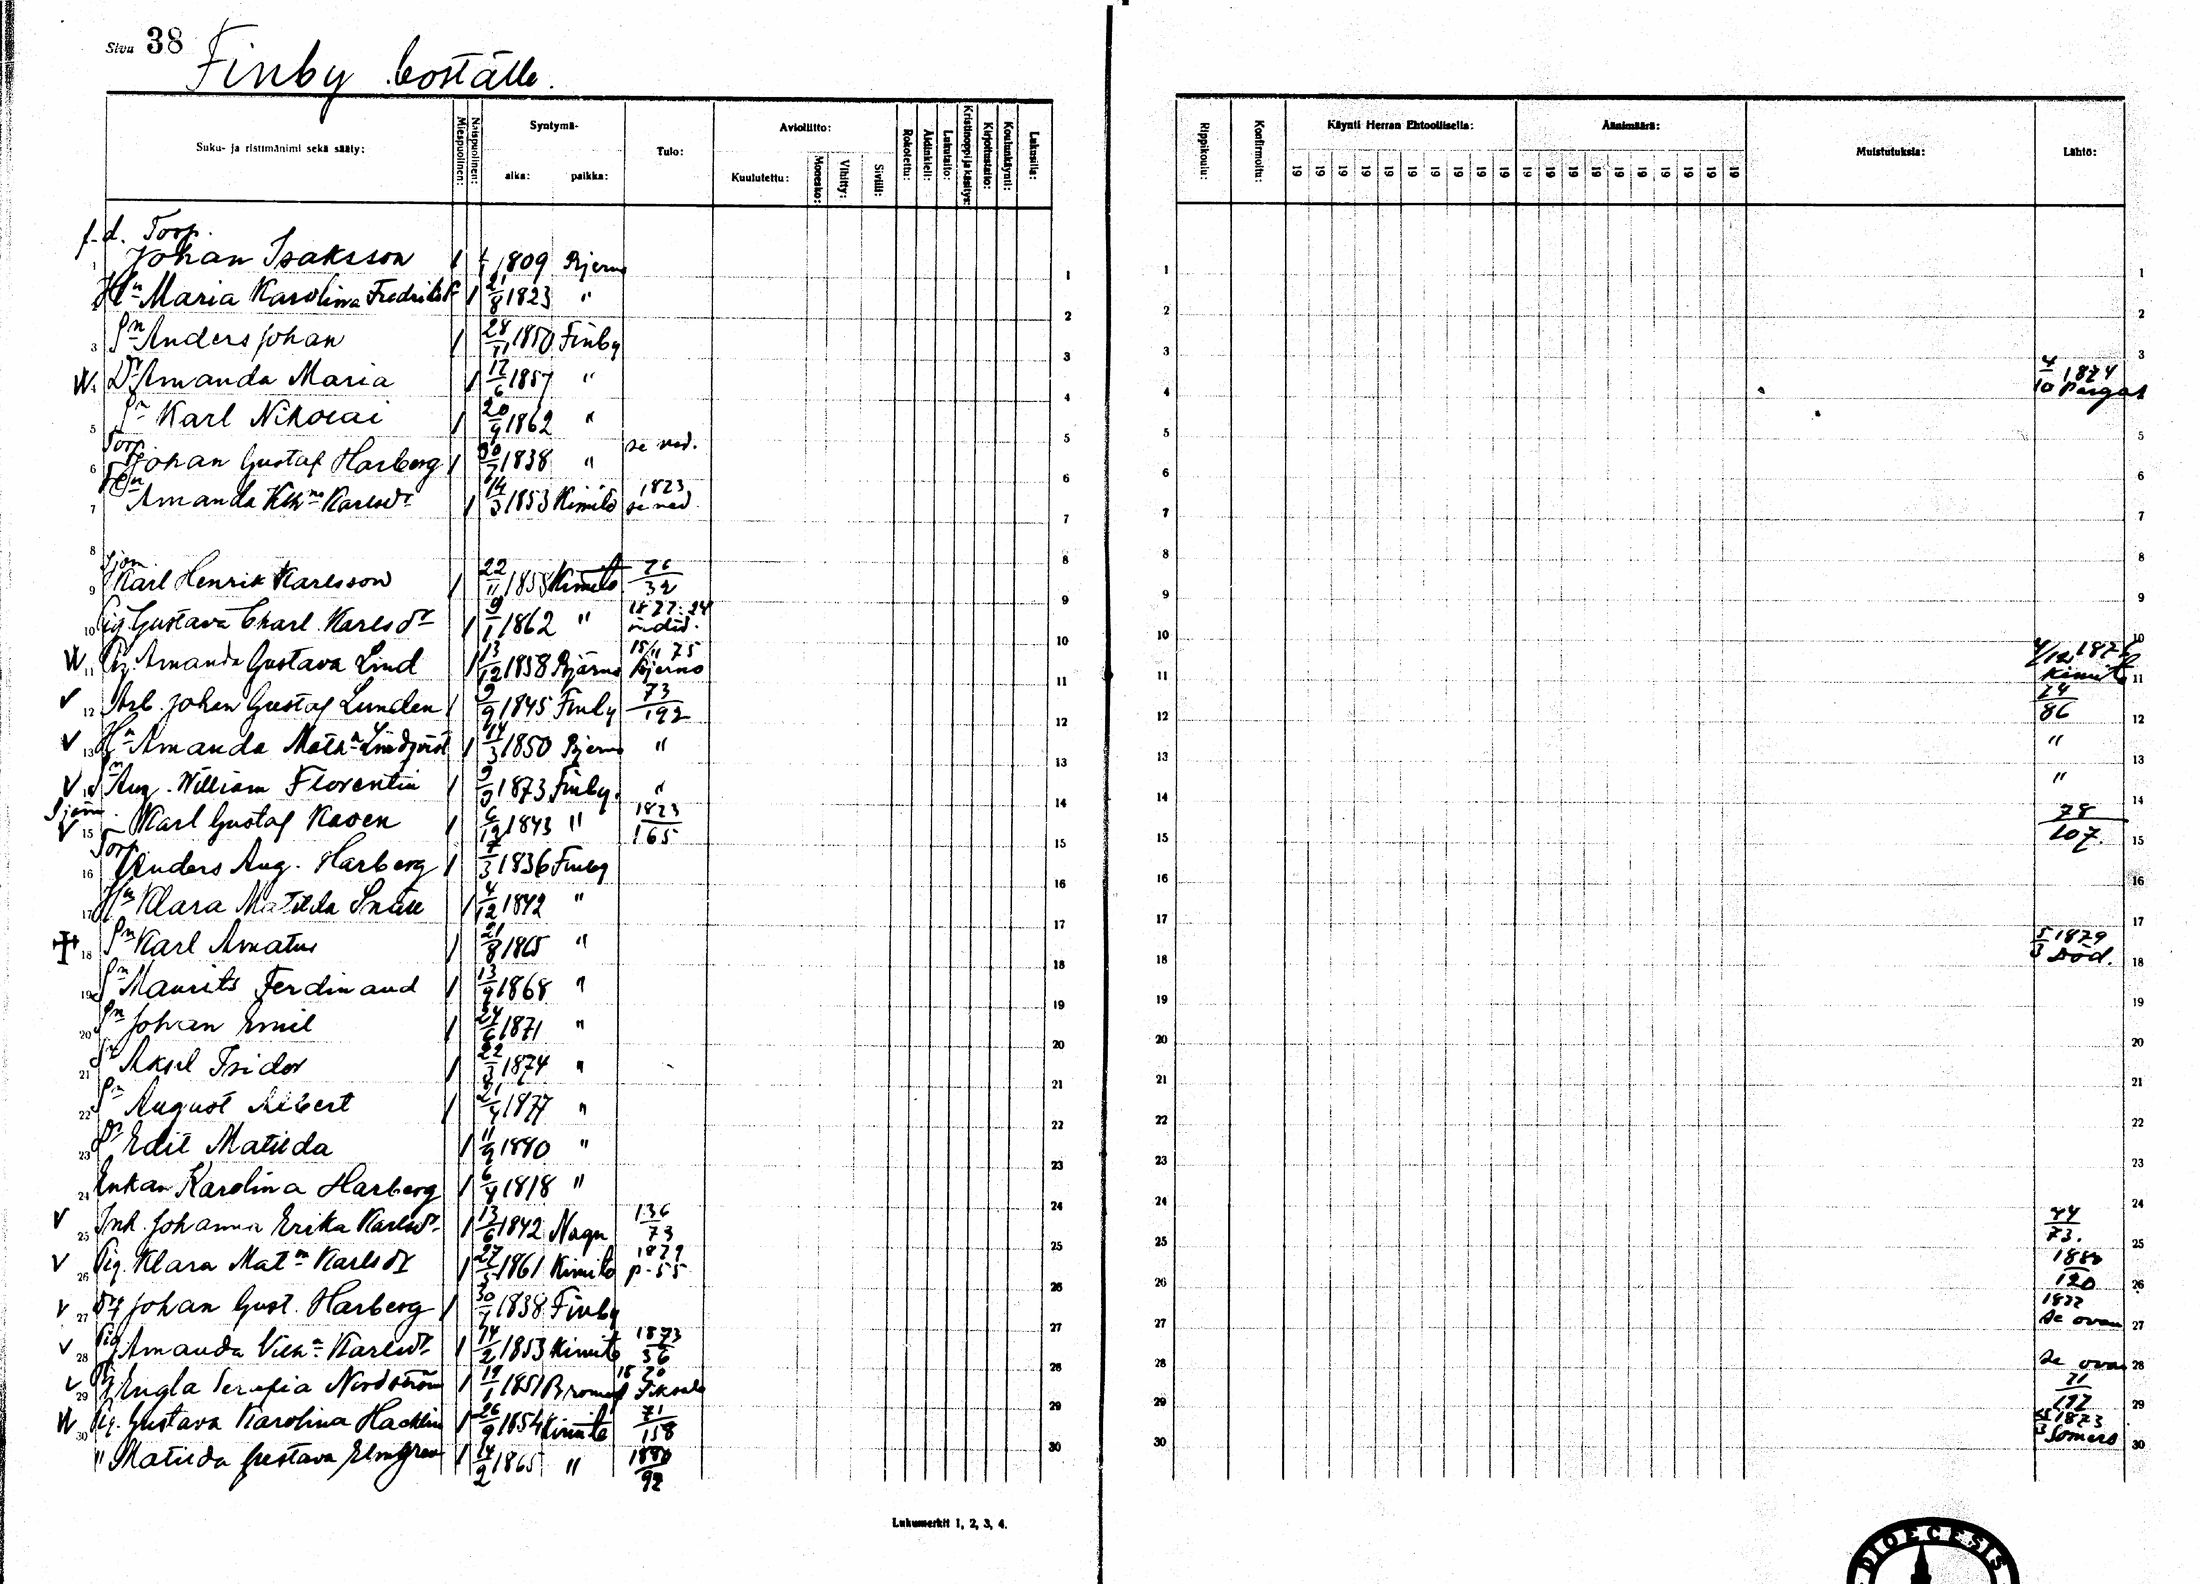 Sivu 38
Finby boställe.
Suku- ja ristimänimi sekä sääty: Miespuolinen: Naispuolinen: Syntymä- aika: paikka: Tulo: Kuulutettu: Avioliitto: Monesko: Vihitty: Siviili: Rokotettu: Äidinkieli: Lukutaito: Kristinoppi ja käsitys: Kirjoitustaito: Koulunkäynti: Lukusija: Rippikoulu: Konfirmoitu: Käynti Herran Ehtoollisella: Äänimäärä: Muistutuksia: Lähtö:
19 19 19 19 19 19 19 19 19 19 19 19 19 19 19 19 19 19 19 19
f.d. Torp.
1 Johan Isaksson 1 1809 Bjerno 1 1 1
2 Hn Maria Karolina 1 21/8 1823 " 2 2 2
3 Sn Anders Johan 1 28/11 1850 Finby 3 3 3
4 Dr Amanda Maria 1 12/6 1857 " 4 4 4/10 1874 Pargas
5 Sn Karl Nikolai 1 20/9 1862 " 5 5 5
Torp.
6 Johan Gustaf Harberg 1 30/7 1838 " se ned. 6 6 6
7 Hn Amanda Karlsdr 1 14/3 1853 Kimito 1823 se ned. 7 7 7
8 8 8 8
9 Karl Henrik Karlsson 1 22/11 1858 Kimito 76/32 9 9 9
10 Pig. Gustava Charl. Karlsdr 1 9/1 1862 " 10 10 10
11 Pig. Amanda Gustava Lind 1 13/12 1858 Bjärno 15/11 75 Bjerno 11 11 11 Kimito
12 Arb. Johan Gustaf Lunden 1 9/9 1845 Finby 73/192 12 12 12 74/86
13 Hn Amanda Matha Lindqvist 1 14/3 1850 Bjerno " 13 13 13 "
14 Sn Aug. William Florentin 1 9/9 1873 Finby. " 14 14 14 "
15 Karl Gustaf 1 6/12 1843 " 1823/165 15 15 15 78/107.
Torp
16 Anders Aug. Harberg 1 7/3 1836 Finby 16 16 16
17 Hn Klara Matilda 1 4/12 1842 " 17 17 17
18 Sn Karl Amatus 1 21/8 1865 " 18 18 18 5/3 1879 Död.
19 Sn Maurits Ferdinand 1 13/9 1868 " 19 19 19
20 Sn Johan Emil 1 24/6 1871 " 20 20 20
21 Sn Aksel Isidor 1 22/3 1874 " 21 21 21
22 Sn August Albert 1 21/4 1877 " 22 22 22
23 Dr Edit Matilda 1 11/9 1880 " 23 23 23
24 Enkan Karolina Harberg 1 6/4 1818 " 24 24 24
25 Inh. Johanna Erika Karlsdr 1 13/6 1842 Nagu 136/73 25 25 25 74/73.
26 Pig. Klara Matn Karlsdr 1 27/5 1861 Kimito 1879 p. 55 26 26 26 1880/120
27 Johan Gust. Harberg 1 30/7 1838 Finby 27 27 27 se ovan
28 Pig Amanda Karlsdr 1 14/2 1853 Kimito 1873/36 28 28 28 se ovan
29 Engla Serafia Nordström 1 19/1 1851 Bromarf 29 29 29 71/192
30 Pig. Gustava Karolina Hacklin 1 26/9 1854 Kimito 71/158 30 30 30 1873 Somero
" Matilda Gustava Elmgren 1 14/2 1865 " 1880/92
Lukumerkit 1, 2, 3, 4.
DIOECESIS